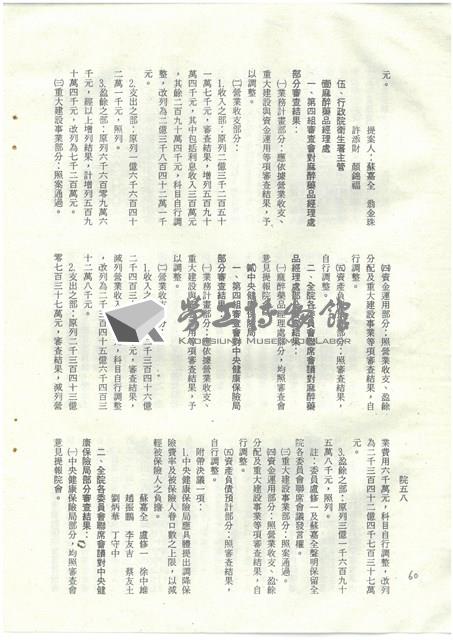 元。
提案人：蘇嘉全　翁金珠
許添財　顏錦福
伍、行政院衛生署主管
壹麻醉藥品經理處
一、第四組審查會對麻醉藥品經理處
部分審查結果：
㈠業務計畫部分：應依據營業收支、
重大建設與資金運用等項審查結果，予
以調整。
㈡營業收支部分：
1.收入之部：原列二億三千二百五十
一萬七千元，審查結果，增列五百九十
萬四千元，其中包括利息收入三百萬元
，其餘二百九十萬四千元，科目自行調
整，改列為二億三千八百四十二萬一千
元。
2.支出之部：原列一億六千六百四十
二萬一千元，照列。
3.盈餘之部：原列六千六百零九萬六
千元，經以上增列結果，計增列五百九
十萬四千元，改列為七千二百萬元。
㈢重大建設事業部分：照案通過。
㈣資金運用部分：照營業收支、盈餘
分配及重大建設事業等項審查結果，自
行調整。
㈤資產負債預計部分：照審查結果，
自行調整。
二、全院各委員會聯席會議對麻醉藥
品經理處部分審查結果：
㈠麻醉藥品經理處部分，均照審查會
意見提報院會。
貳中央健康保險局
一、第四組審查會對中央健康保險局
部分審查結果：
㈠業務計畫部分：應依據營業收支、
重大建設與資金運用等項審查結果，予
以調整。
㈡營業收支部分：
1.收入之部：原列二千三百四十六億
二千四百三十二萬元，審查結果，
減列營業收入六千萬元，科目自行調整
，改列為二千三百四十五億六千四百三
十二萬八千元。
2.支出之部：原列二千三百四十三億
零七百三十七萬元，審查結果，減列營
業費用六千萬元，科目自行調整，改列
為二千三百四十二億四千七百三十七萬
元。
3.盈餘之部：原列三億一千六百九十
五萬八千元，照列。
註：委員盧修一及蘇嘉全聲明保留全
院各委員會聯席會議發言權。
㈢重大建設事業部分：照案通過。
㈣資金運用部分：照營業收支、盈餘
分配及重大建設事業等項審查結果，自
行調整。
㈤資產負債預計部分：照審查結果，
自行調整。
附帶決議一項：
1.中央健康保險局應具體提出調降保
險費率及被保險人眷口數之上限，以減
輕被保險人之負擔。
蘇嘉全　盧修一　徐中雄
趙振鵬　李友吉　蔡友土
劉炳華　丁守中
二、全院各委員會聯席會議對中央健
康保險局部分審查結果：
㈠中央健康保險局部分，均照審查會
意見提報院會。
院五八
60
勞工博物館
KAOHSIUNG MUSEUM OF LABOR